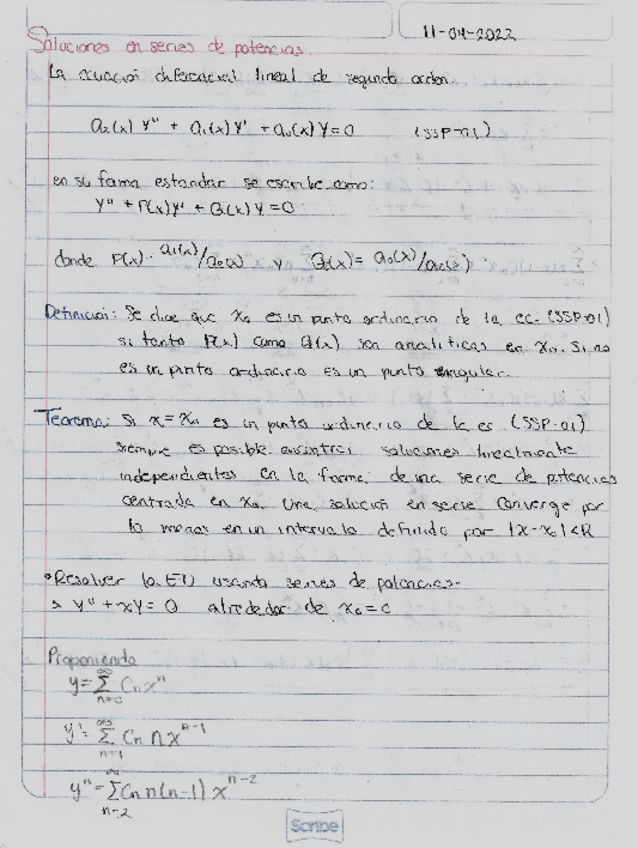 11-04-2022
Soluciones en series de potencias.
La ecuación diferencial lineal de segundo orden
a₂(x) y'' + a₁(x) y' + a₀(x) y = 0 (SSP-01)
en su forma estandar se escribe como:
y'' + P(x)y' + Q(x) y = 0
donde P(x) = a₁(x)/a₂(x) y Q(x) = a₀(x)/a₂(x)
Definición: Se dice que x₀ es un punto ordinario de la ec. (SSP-01)
si tanto P(x) como Q(x) son analiticas en x₀. Si no
es un punto ordinario es un punto singular.
Teorema: Si x = x₀ es un punto ordinario de la ec (SSP-01)
siempre es posible encontrar soluciones linealmente
independientes en la forma de una serie de potencias
centrada en x₀. Una solución en serie converge por
lo menos en un intervalo definido por |x-x₀|<R
•Resolver la ED usando series de potencias.
y'' + xy = 0 alrededor de x₀ = 0
Proponiendo
y = ∑_{n=0}^{∞} Cₙxⁿ
y' = ∑_{n=1}^{∞} Cₙ n xⁿ⁻¹
y'' = ∑_{n=2}^{∞} Cₙ n(n-1) xⁿ⁻²
Scribe